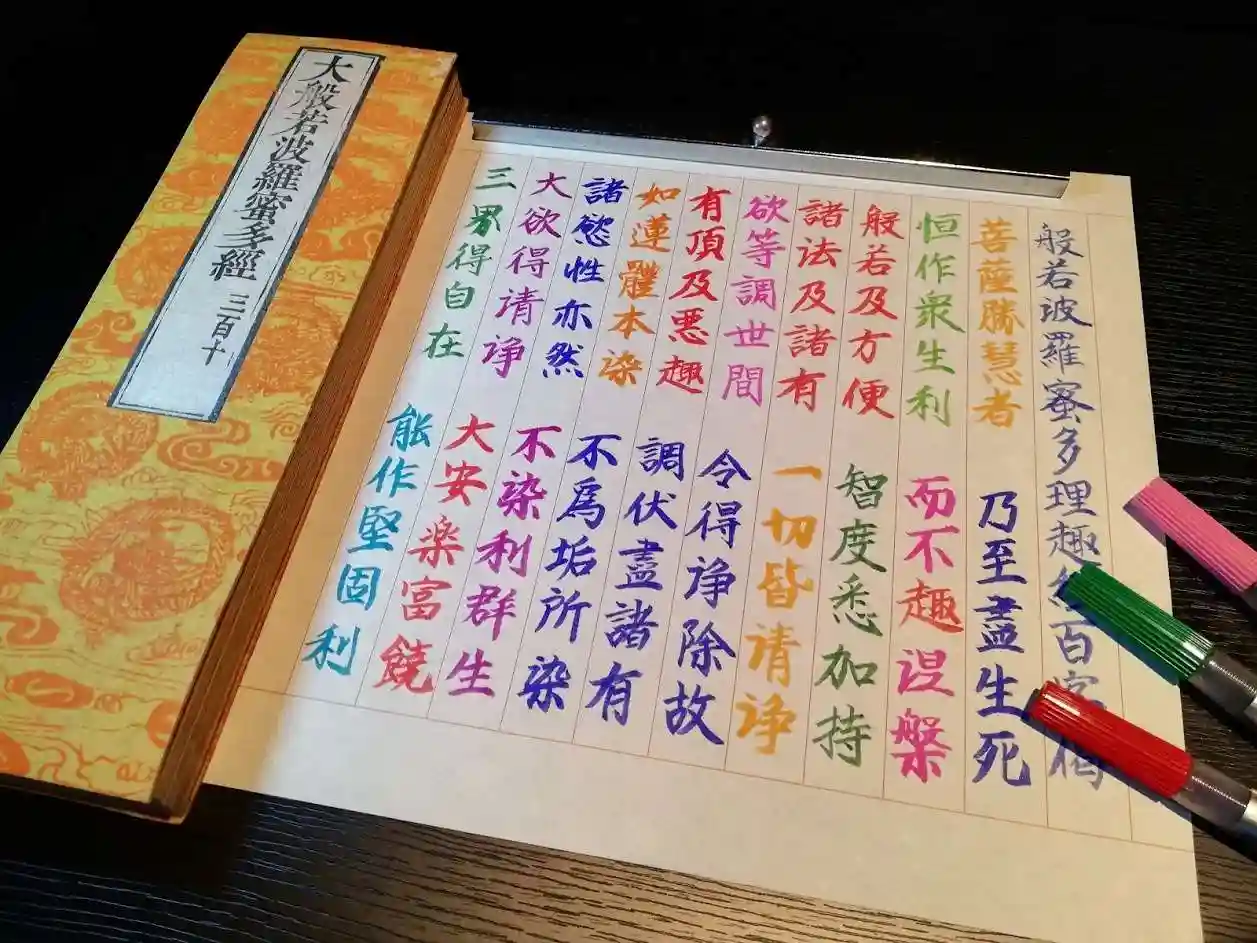 般若波羅蜜多理趣百偈
菩薩勝慧者 乃至盡生死
恒作衆生利 而不趣涅槃
般若及方便 智度悉加持
諸法及諸有 一切皆清浄
欲等調世間 令得浄除故
有頂及悪趣 調伏盡諸有
如蓮體本染 不爲垢所染
諸慾性亦然 不染利群生
大欲得清浄 大安楽富饒
三界得自在 能作堅固利
大般若波羅蜜多經 三百十